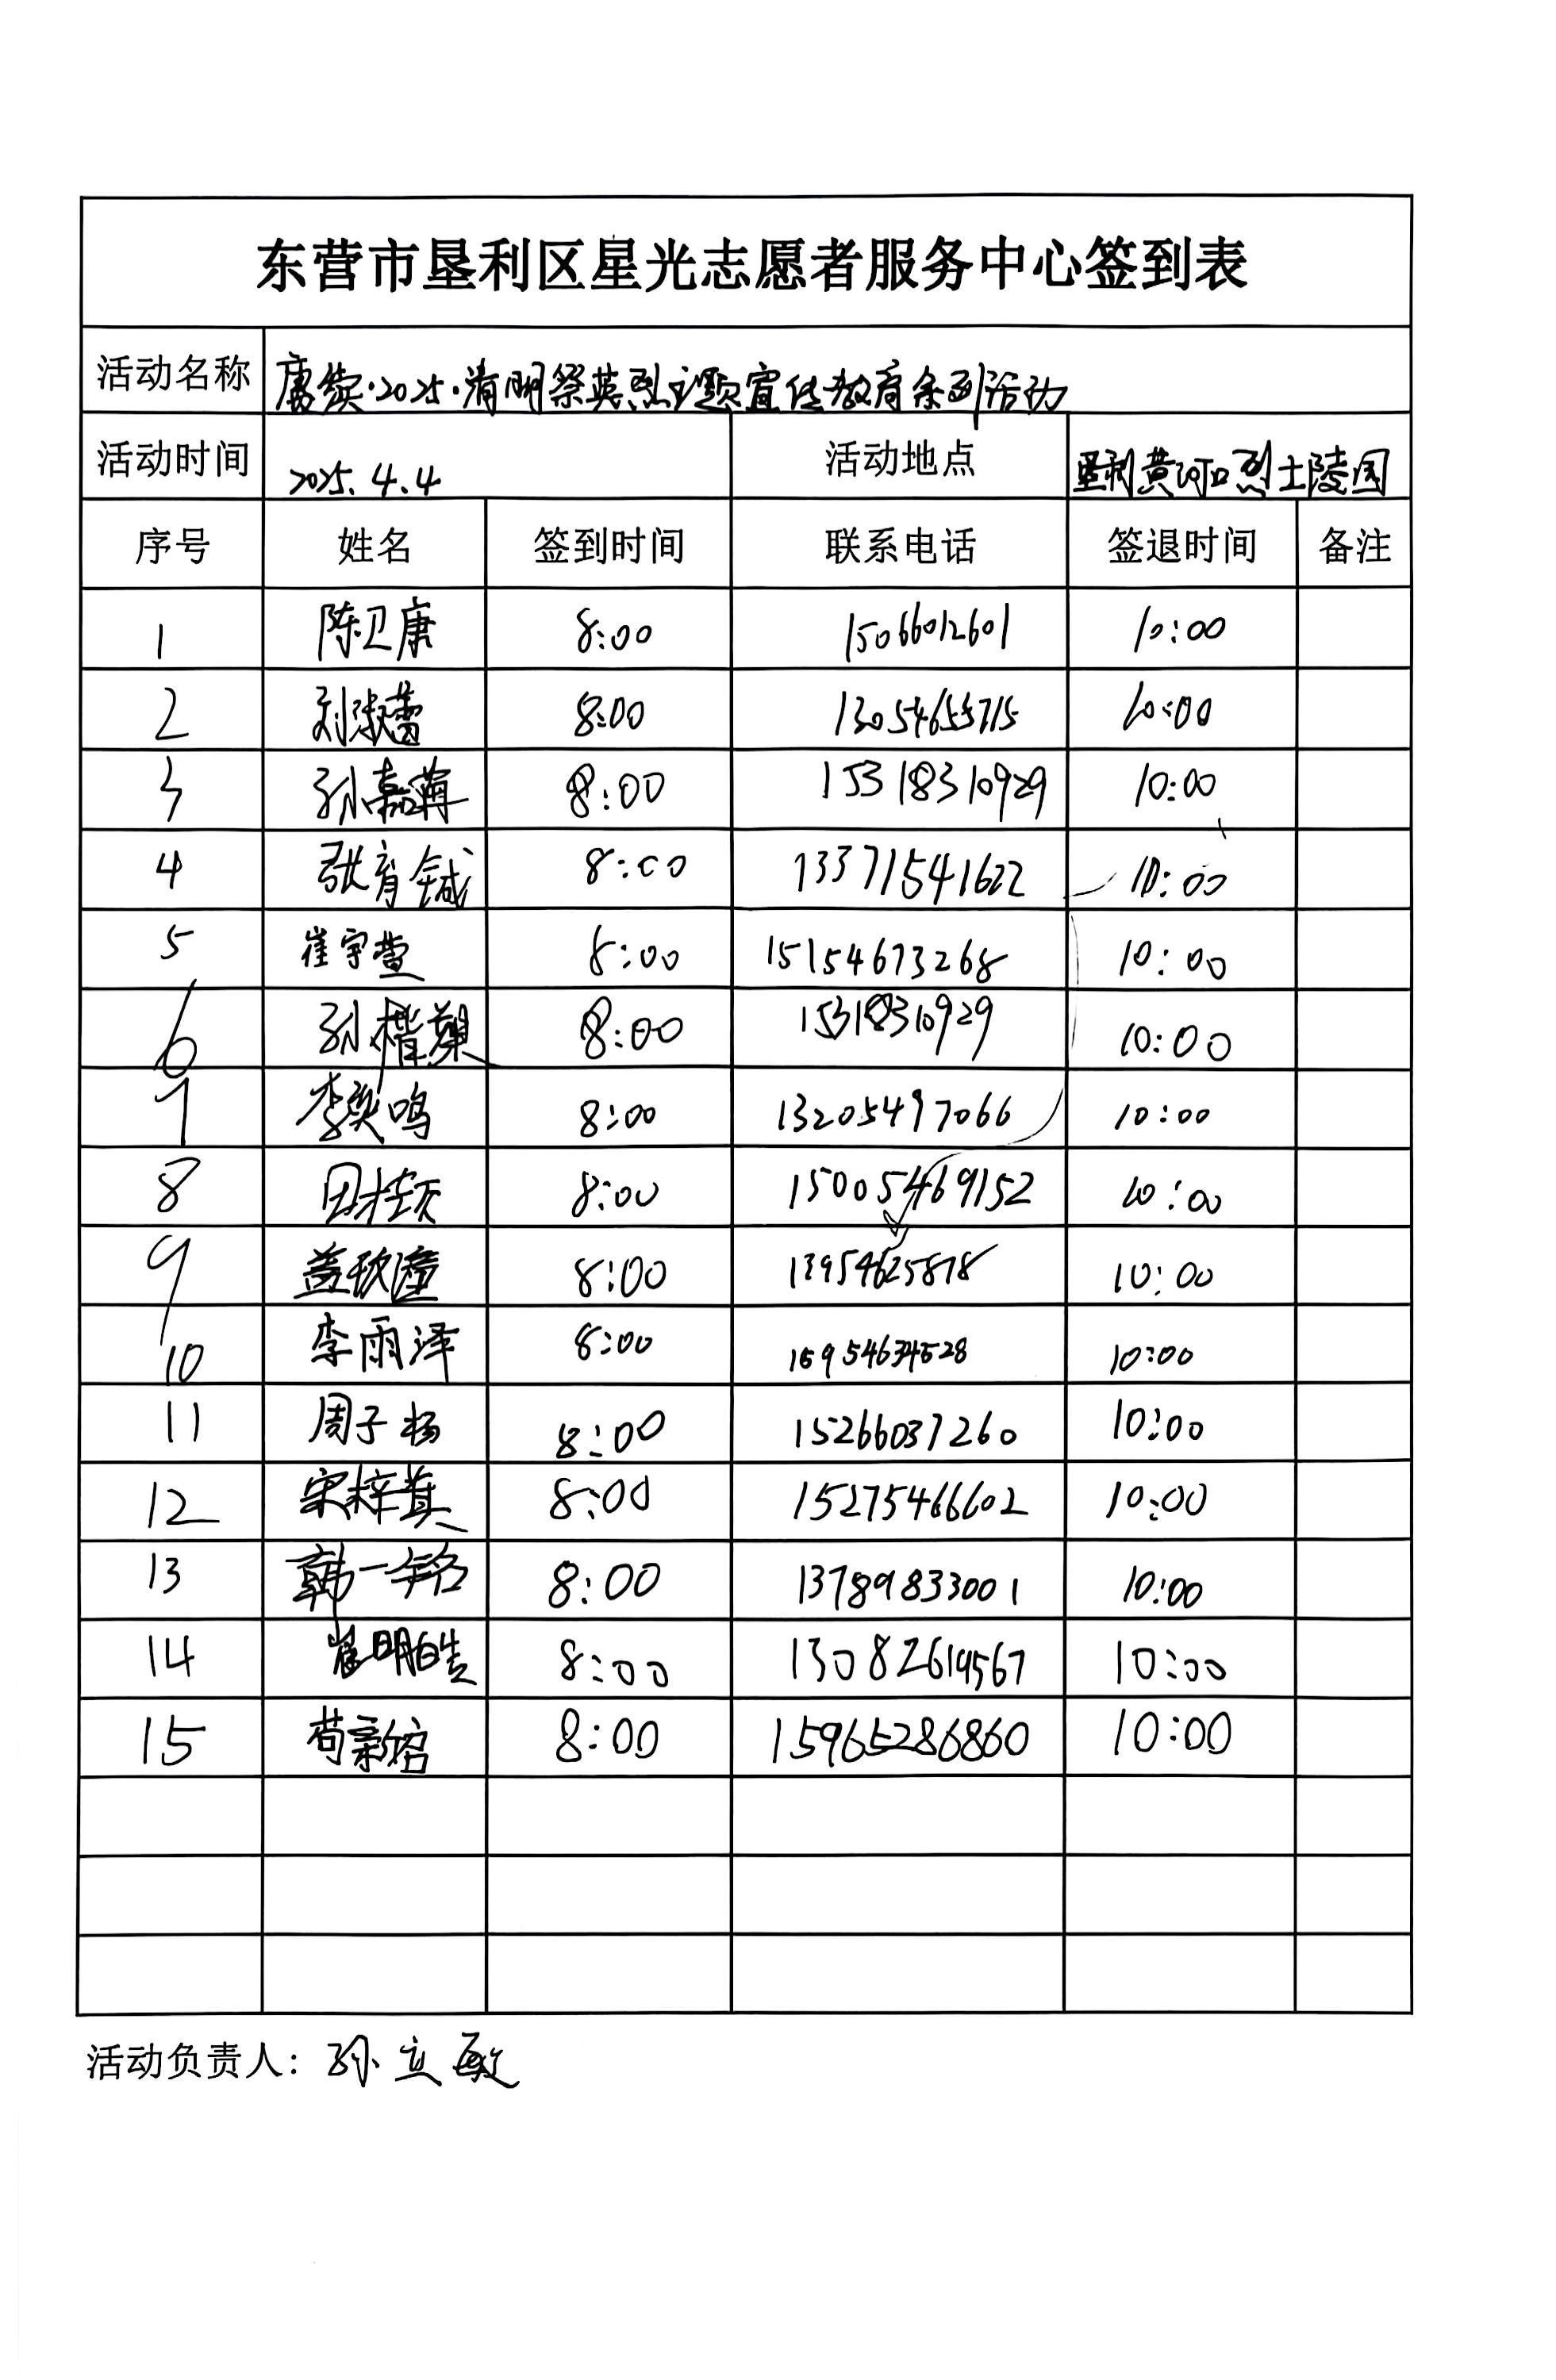 东营市垦利区星光志愿者服务中心签到表
活动名称 赓续·2025·清明祭英烈主题宣传教育系列活动
活动时间 2025.4.4 活动地点 垦利黄河口烈士陵园
序号 姓名 签到时间 联系电话 签退时间 备注
1 陈卫康 8:00 15066012601 10:00
2 刘淑蕾 8:00 13054655715 10:00
3 孙嘉 8:00 15318310929 10:00
4 张育铖 8:00 13371541622 10:00
5 崔宇萱 8:00 15154673268 10:00
6 孙楷 8:00 15318310929 10:00
7 李奕鸣 8:00 13205497066 10:00
8 田桂硕 8:00 15005469152 10:00
9 盖玖潼 8:00 13954625878 10:00
10 李雨泽 8:00 15954634528 10:00
11 周子杨 8:00 15266037260 10:00
12 宋梓萁 8:00 15275466602 10:00
13 韩一 8:00 13789833001 10:00
14 崔明皓 8:00 13082619567 10:00
15 苟新焓 8:00 15965286860 10:00
活动负责人：孙立敏